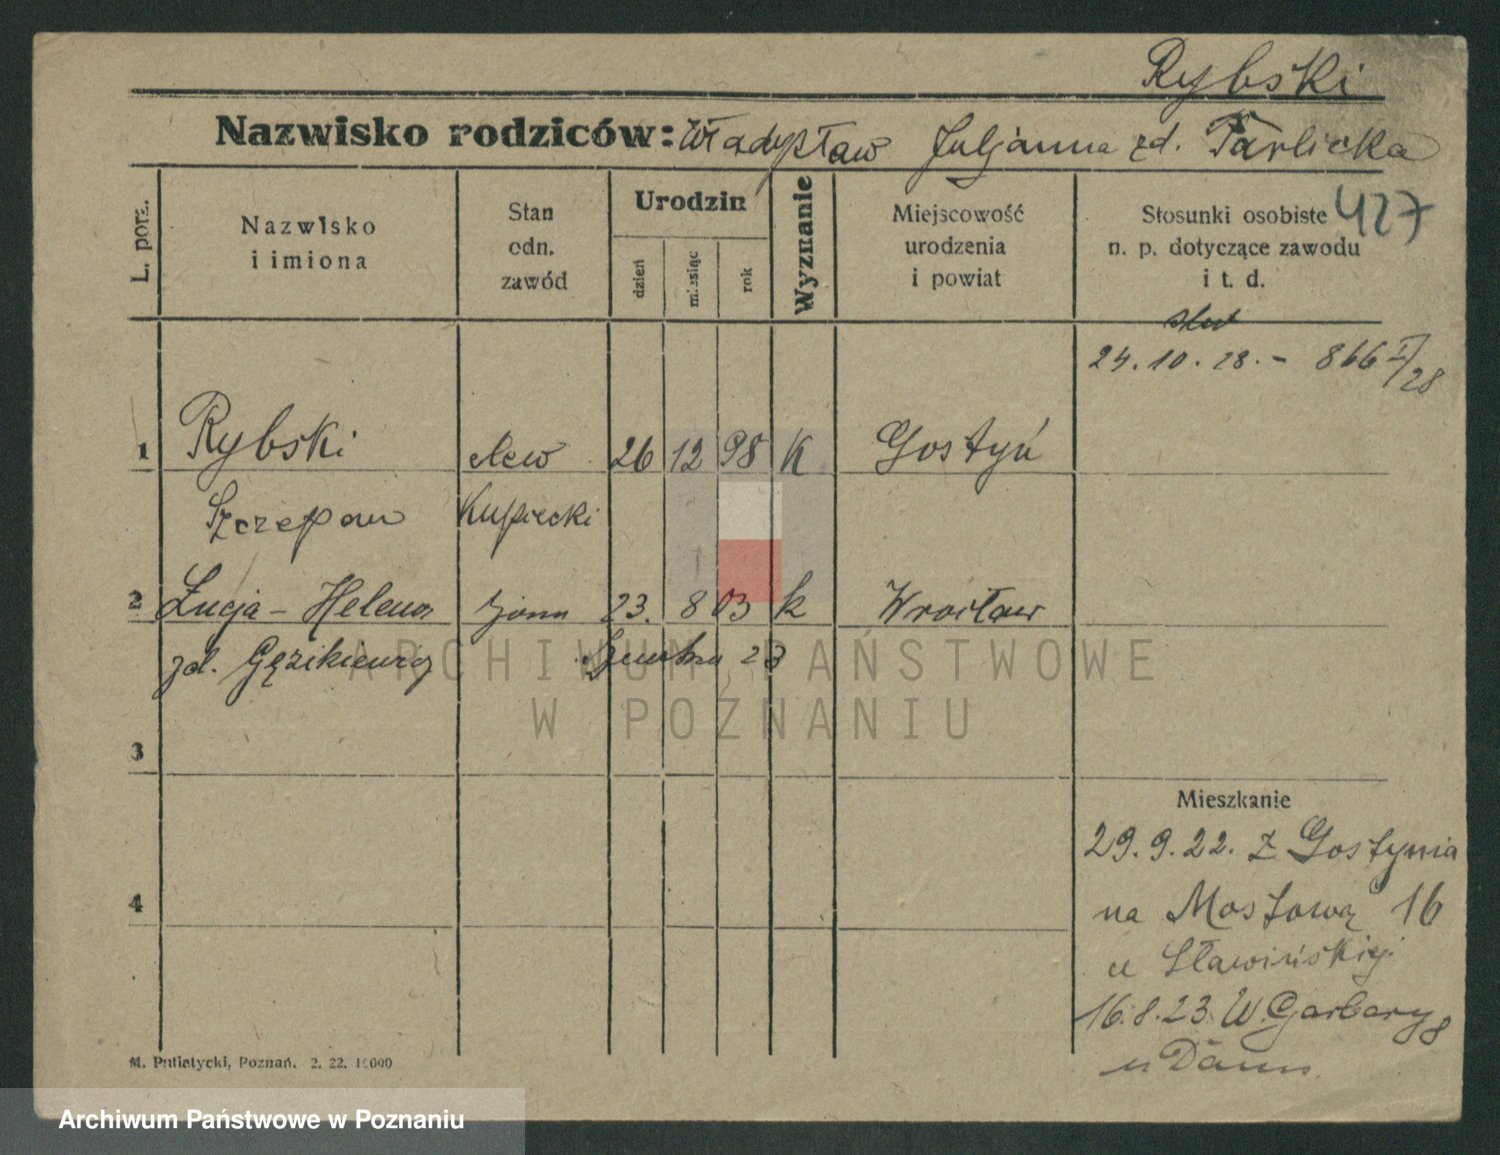 Rybski
Nazwisko rodziców: Władysław Juljanna zd. Tarlicka
427
L. porz.
Nazwisko
i imiona
Stan
odn.
zawód
Urodzin
dzień
miesiąc
rok
Wyznanie
Miejscowość
urodzenia
i powiat
Stosunki osobiste
n. p. dotyczące zawodu
i t. d.
24. 10. 28. - 866 I/28
1 Rybski elew 26 12 98 K Gostyń
Szczepan Kupiecki
2 Łucja - Helena żona 23. 8 03 k Wrocław
zd. Gęzikiewicz 23
3
Mieszkanie
29. 9. 22. z Gostynia
4
na Mostową 16
u Sławińskiej
16. 8. 23 W. Garbary 8
u
M. Putiatycki, Poznań. 2. 22. 10000
ARCHIWUM PAŃSTWOWE
W POZNANIU
Archiwum Państwowe w Poznaniu